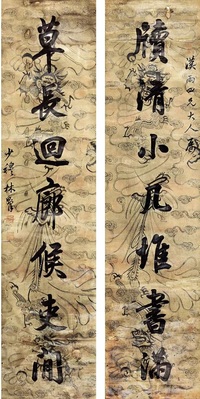 漢南四兄大人屬
牘清小尾堆書滿
草長迴廊候吏閒
少穆林